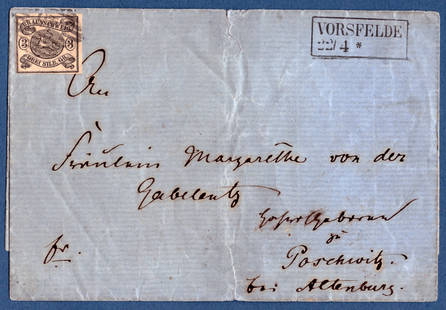 BRAUNSCHWEIG
3 3
DREI SILB. GR.
VORSFELDE
22/4 *
An
Fräulein Margarethe von der
Gabelentz
Hochgeboren
zu
Poschwitz.
bei Altenburg.
fr.